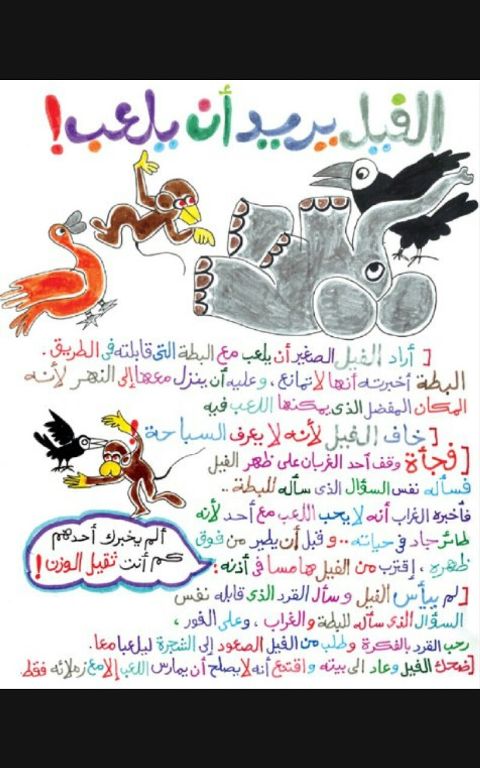 الفيل يريد أن يلعب !
[ أراد الفيل الصغير أن يلعب مع البطة التى قابلته فى الطريق .
البطة أخبرته أنها لا تمانع ، وعليه أن ينزل معها إلى النهر لأنه
المكان المفضل الذى يمكنها اللعب فيه
[ خاف الفيل لأنه لا يعرف السباحة
[ فجأة وقف أحد الغربان على ظهر الفيل
فسأله نفس السؤال الذى سأله للبطة ..
فأخبره الغراب أنه لا يحب اللعب مع أحد لأنه
طائر جاد فى حياته .. و قبل أن يطير من فوق
ظهره ، إقترب من الفيل هامسا فى أذنه :
ألم يخبرك أحدهم
كم أنت ثقيل الوزن !
[ لم ييأس الفيل و سأل القرد الذى قابله نفس
السؤال الذى سأله للبطة و الغراب ، وعلى الفور ،
رحب القرد بالفكرة و طلب من الفيل الصعود إلى الشجرة ليلعبا معا .
[ ضحك الفيل وعاد الى بيته و اقتنع أنه لا يصلح أن يمارس اللعب إلا مع زملائه فقط .